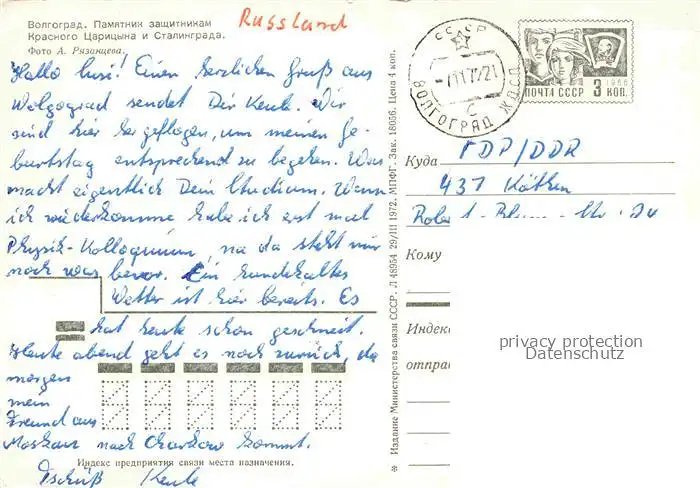 Волгоград. Памятник защитникам
Красного Царицына и Сталинграда.
Фото А. Рязанцева.
Russland
Hallo Susi! Einen herzlichen Gruß aus
Wolgograd sendet Dir Keule. Wir
sind hier hergeflogen, um meinen Ge-
burtstag entsprechend zu begehen. Was
macht eigentlich Dein Studium. Wenn
ich wiederkomme habe ich erst mal
Physik-Kolloquium, na da steht mir
noch was bevor. Ein hundekaltes
Wetter ist hier bereits. Es
hat heute schon geschneit.
Heute abend geht es noch zurück, da
morgen
mein
Freund aus
Moskau nach Charkow kommt.
Tschüß Keule
Индекс предприятия связи места назначения.
* Издание Министерства связи СССР. Л 48954 29/III 1972. МПФГ. Зак. 18056. Цена 4 коп.
СССР
ВОЛГОГРАД ЖДСП
С
ПОЧТА СССР 3 КОП.
1966
Куда ГДР/DDR
437 Köthen
Кому
Индекс
отправ
privacy protection
Datenschutz